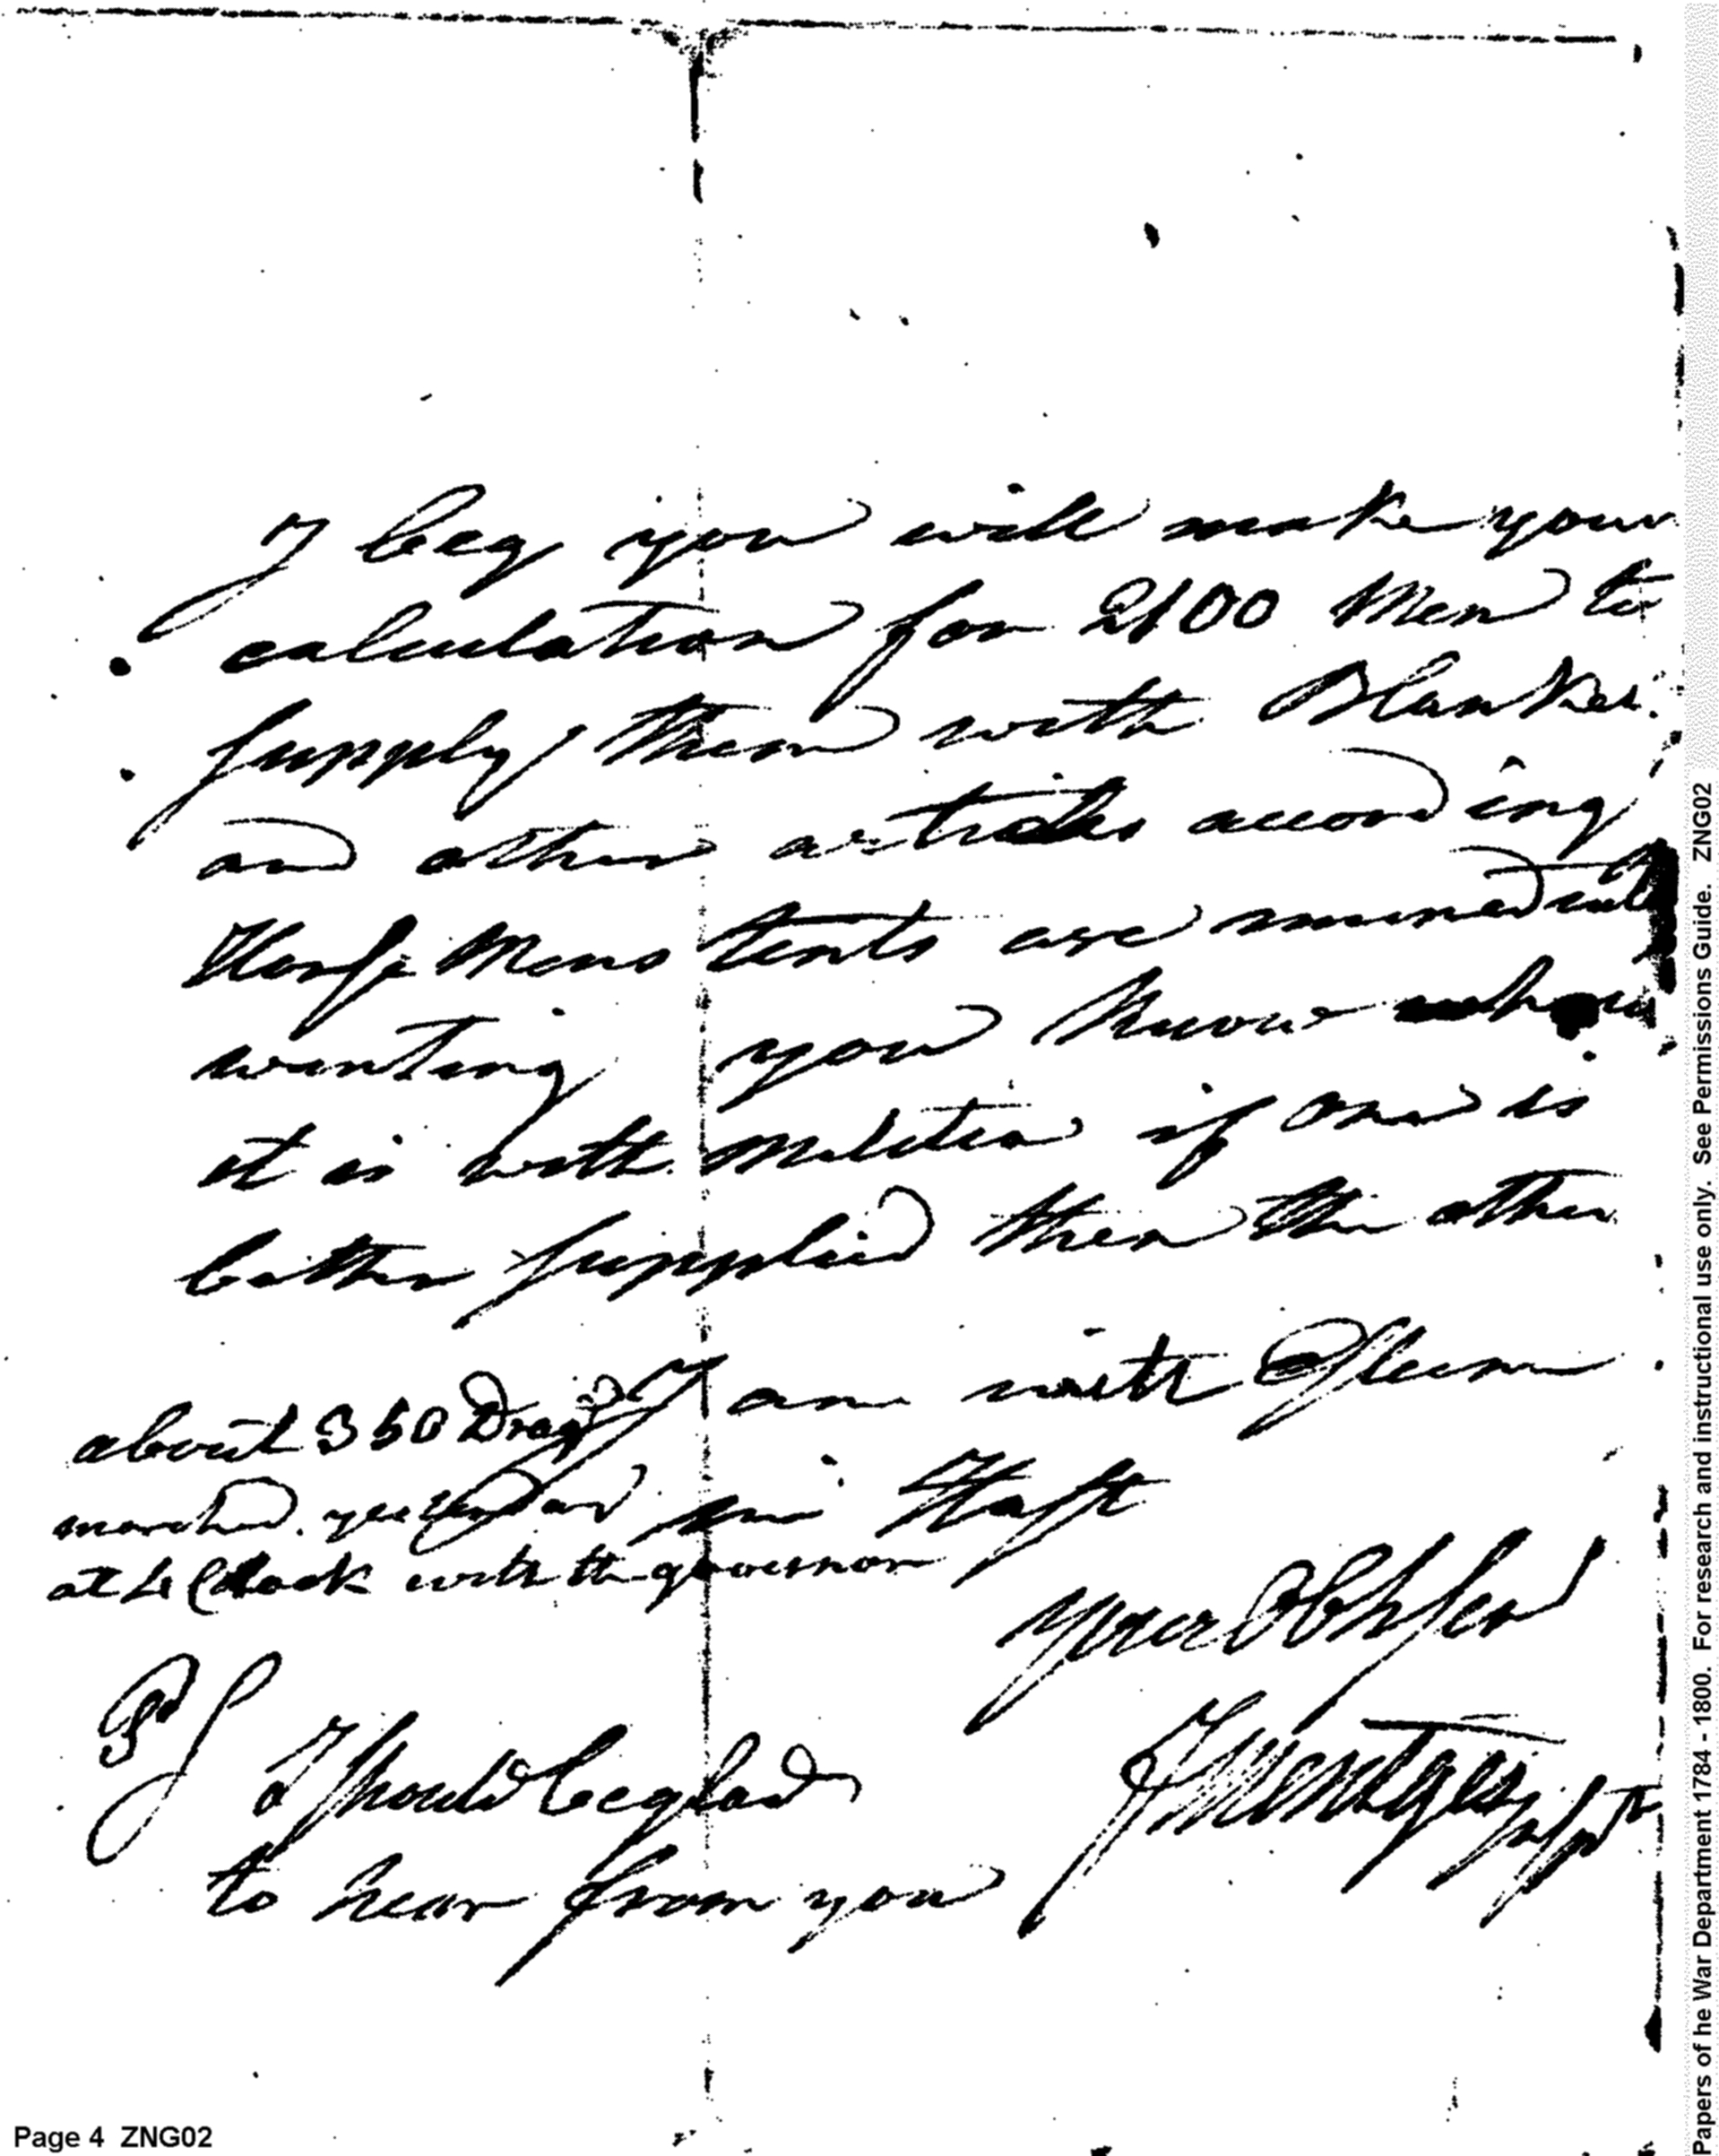 I beg you will make your
calculation for 2100 Men to
supply them with Blanket
and other articles according
Horse Mens tents are immediatel
wanting you know how
it is with militia if one is
better supplied then the other
I am with Esteem
in Hast
your Ob Ser
about 350 Drag
marched yesterday
at 4 Clock with the governor
PS
I should be glad
to hear from you
Page 4 ZNG02
Papers of he War Department 1784 - 1800. For research and instructional use only. See Permissions Guide. ZNG02